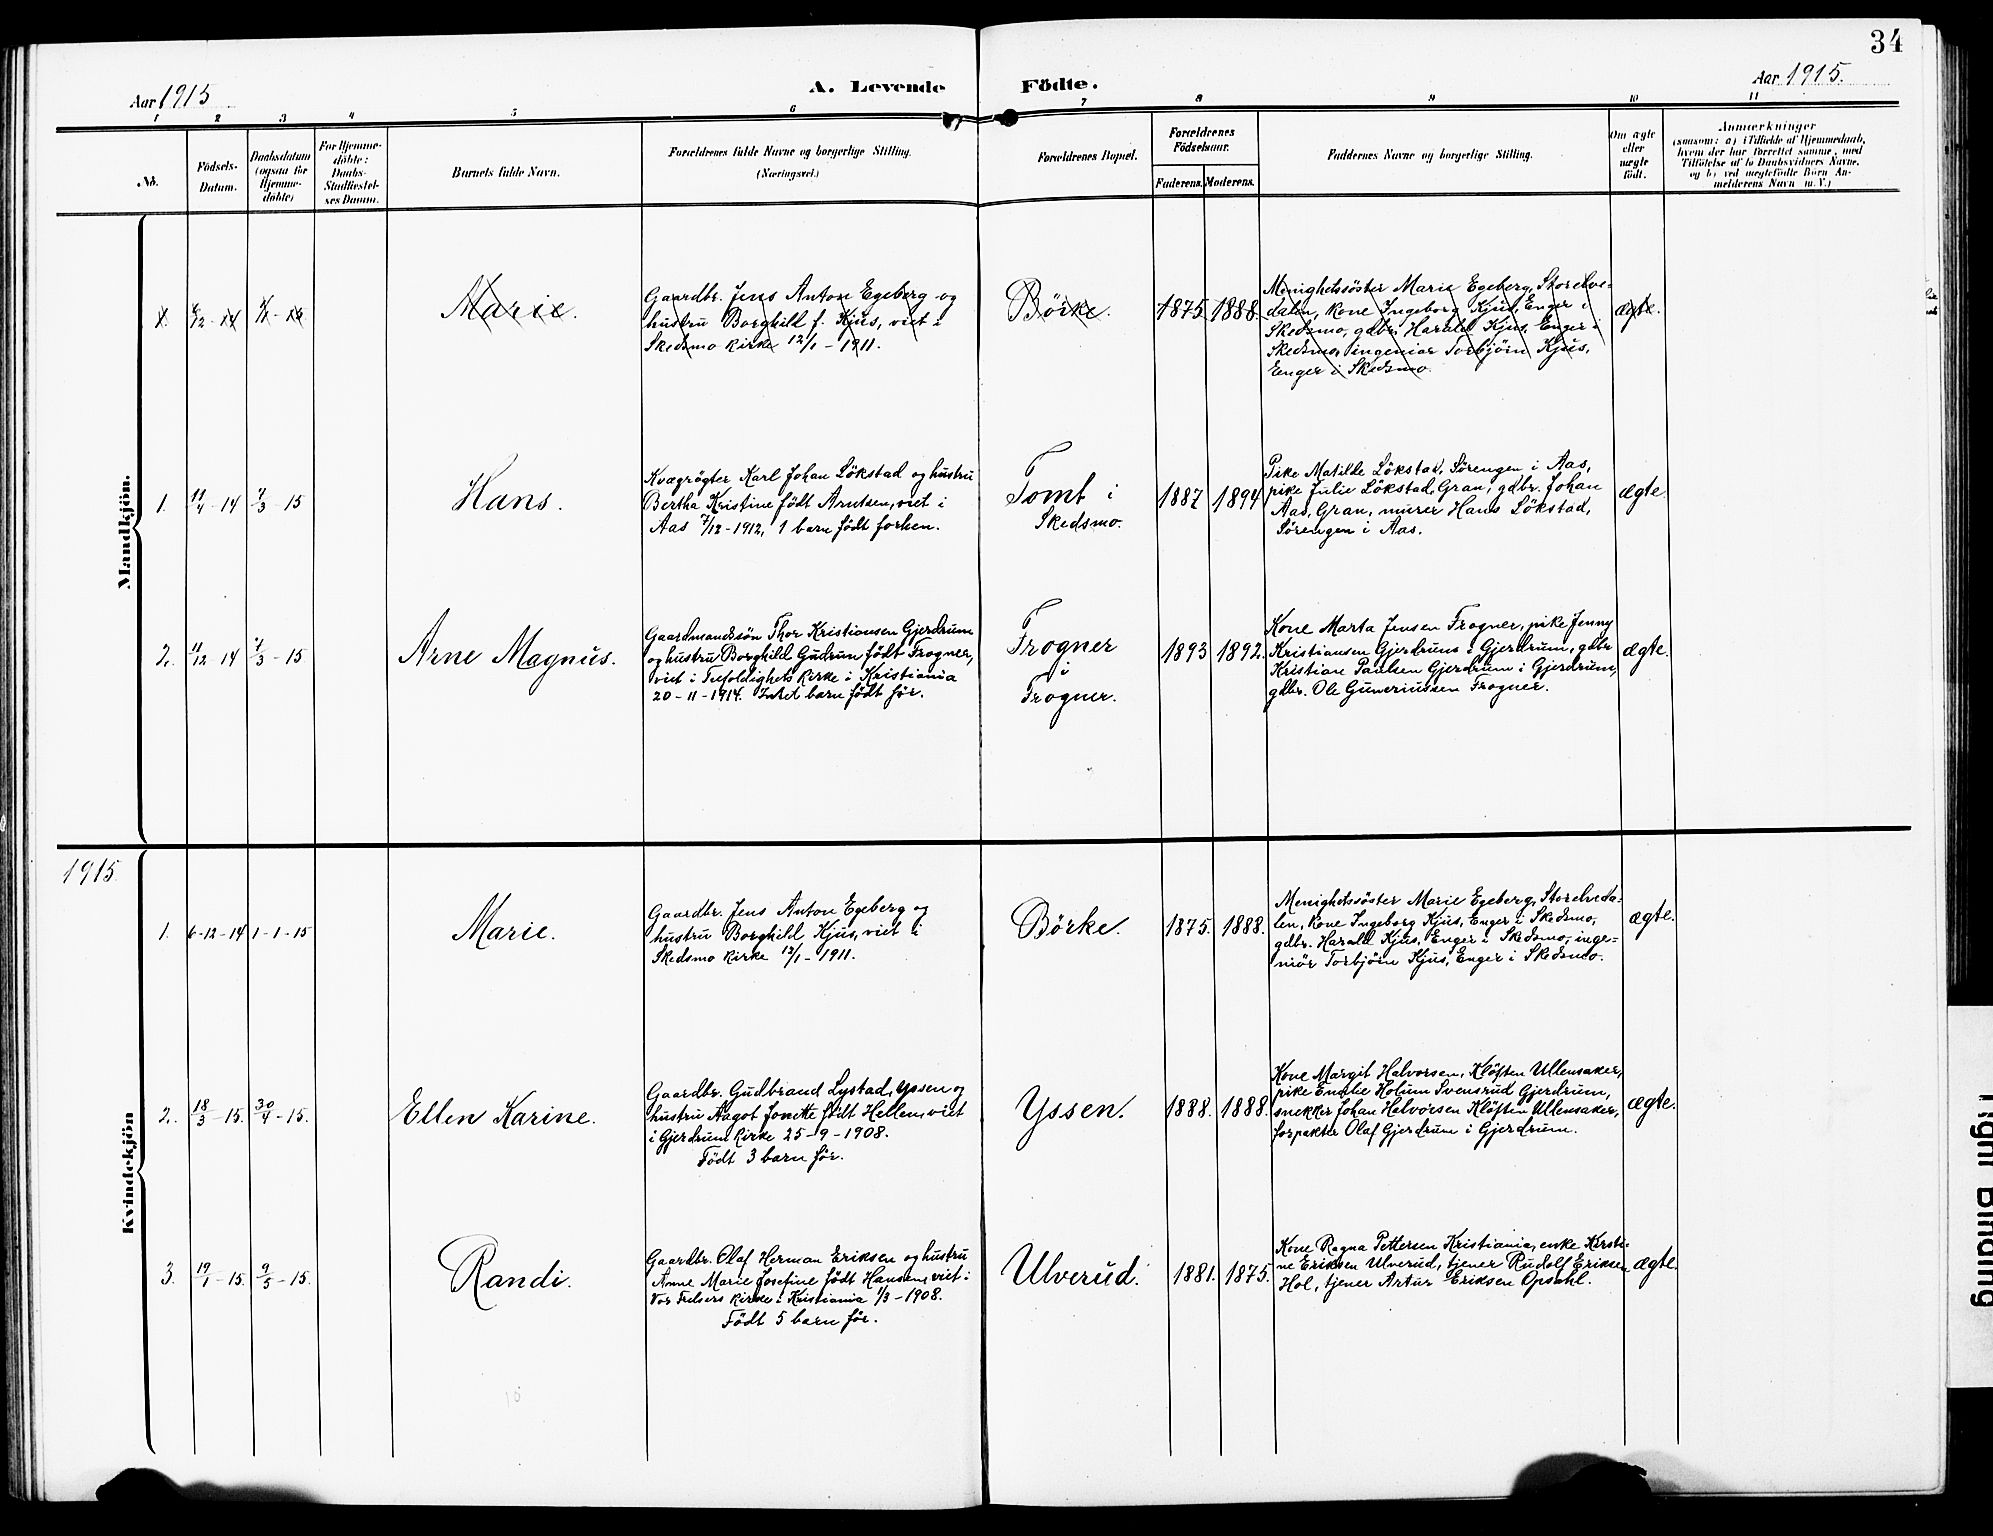 34
Aar 1915
A. Levende Födte.
Aar 1915.
1 2 3 4 5 6 7 8 9 10 11
No.
Födsels-
Datum.
Daabsdatum
(ogsaa for
Hjemme-
döbte)
For Hjemme-
döbte:
Daabs-
Stadfæstel-
ses Datum.
Barnets fulde Navn.
Forældrenes fulde Navne og borgerlige Stilling.
(Næringsvei.)
Forældrenes Bopæl.
Forældrenes
Födselsaar.
Faderens. Moderens.
Faddernes Navne og borgerlige Stilling.
Om ægte
eller
uægte
födt.
Anmærkninger
(saasom: a) i Tilfælde af Hjemmedaab,
hvem der har forrettet samme, med
Tilföielse af to Daabsvidners Navne,
og b) ved uægtefödte Börn An-
melderens Navn m. V.)
Mandkjön.
1. 6/12 - 14 1/1 - 15
Marie.
Gaardbr. Jens Anton Egeberg og
hustru Borghild f. Kjus, viet i
Skedsmo kirke 12/1 - 1911.
Börke.
1875 1888.
Menighetssöster Marie Egeberg, Storelve-
dalen, kone Ingeborg Kjus, Enger i
Skedsmo, gdbr. Harald Kjus, Enger i
Skedsmo, ingeniör Torbjörn Kjus,
Enger i Skedsmo.
ægte.
1. 11/4 - 14 7/3 - 15
Hans.
Kvægrögter Karl Johan Lökstad og hustru
Bertha Kristine född Arntsen, viet i
Aas 7/12 - 1912, 1 barn född forhen.
Tomt i
Skedsmo.
1887 1894
Pike Matilde Lökstad, Sörengen i Aas,
pike Julie Lökstad, Gran, gdbr. Johan
Aas, Gran, murer Hans Lökstad,
Sörengen i Aas.
ægte.
2. 11/12 - 14 7/3 - 15
Arne Magnus.
Gaardmandssön Thor Kristiansen Gjerdrum
og hustru Borghild Gudrun född Frogner,
viet i Trefoldighets kirke i Kristiania
20 - 11 - 1914. Intet barn född för.
Frogner
i
Frogner.
1893 1892.
Kone Marta Jensen Frogner, pike Jenny
Kristiansen Gjerdrum i Gjerdrum, gdbr
Kristian Paulsen Gjerdrum i Gjerdrum,
gdbr. Ole Guneriussen Frogner.
ægte.
1915.
Kvindekjön
1. 6-12-14 1-1-15
Marie.
Gaardbr. Jens Anton Egeberg og
hustru Borghild Kjus, viet i
Skedsmo kirke 12/1 - 1911.
Börke.
1875. 1888.
Menighetssöster Marie Egeberg, Storelveda-
len, kone Ingeborg Kjus, Enger i Skedsmo,
gdbr. Harald Kjus, Enger i Skedsmo, inge-
niör Torbjörn Kjus, Enger i Skedsmo.
ægte.
2. 18/3 - 15. 30/4 - 15.
Ellen Karine.
Gaardbr. Gudbrand Lystad, Yssen og
hustru Aagot Jonette född Hellen, viet
i Gjerdrum kirke 25 - 9 - 1908.
Född 3 barn för.
Yssen.
1888. 1888.
Kone Margit Halvorsen, Klöften Ullensaker,
pike Emilie Holum Svensrud Gjerdrum,
snekker Johan Halvorsen Klöften Ullensaker,
forpakter Olaf Gjerdrum i Gjerdrum.
ægte.
3. 19/1 - 15. 9/5 - 15.
Randi.
Gaardbr. Olaf Herman Eriksen og hustru
Anne Marie Josefine född Hansen, viet i
Vor Frelsers kirke i Kristiania 1/3 - 1908.
Född 5 barn för.
Ulverud.
1881. 1875.
Kone Ragna Pettersen Kristiania, enke Kersti-
ne Eriksen Ulverud, tjener Rudolf Eriksen
Hol, tjener Artur Eriksen Opsahl.
ægte.
Binding